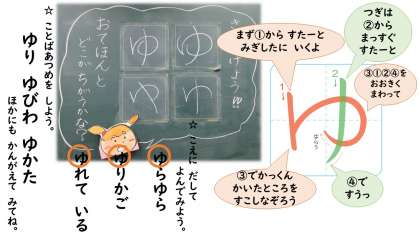 まず①から すたーと
みぎしたに いくよ
つぎは
②から
まっすぐ
すたーと
③①②④を
おおきく
まわって
③でかっくん
かいたところを
すこしなぞろう
④で
すうっ
1
2
ゆ
ゆ
ゆ
ゆ
ゆ
おてほんと
どこがちがうかな!?
☆ こえに だして
よんでみよう。
ゆらゆら
ゆりかご
ゆれて いる
☆ ことばあつめを しよう。
ゆり ゆびわ ゆかた
ほかにも かんがえて みてね。